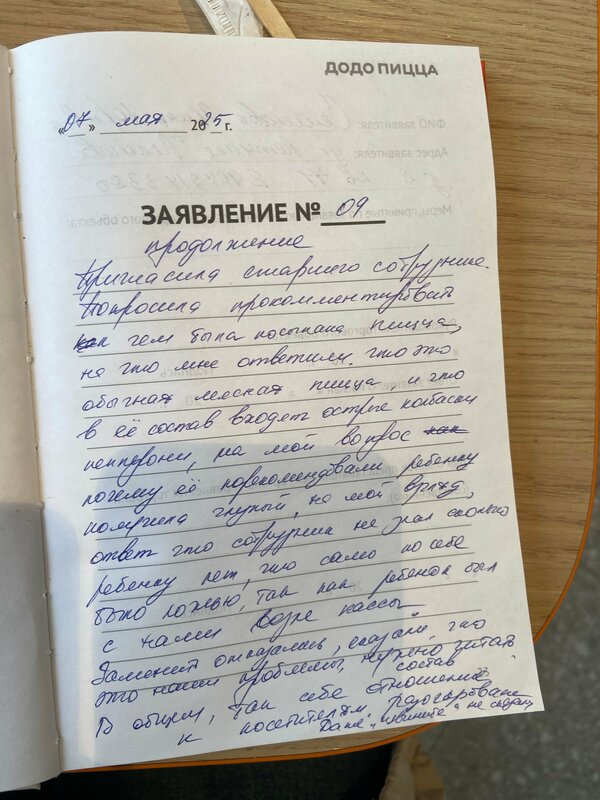 ДОДО ПИЦЦА
«07» мая 2025 г.
ЗАЯВЛЕНИЕ № 09
продолжение
Пригласила старшего сотрудника.
Попросила прокомментировать
как чем была посыпана пицца,
на что мне ответили, что это
обычная мясная пицца, и что
в её состав входят острые колбаски
пепперони, на мой вопрос как
почему её порекомендовали ребенку
получила глупый, на мой взгляд,
ответ что сотрудник не знал сколько
ребенку лет, что само по себе
было ложью, так как ребенок был
с нами возле кассы.
Заменить отказались, сказали, что
это наши проблемы, нужно читать
состав
В общем, так себе отношение
к посетителям.
Даже "извините" не сказали